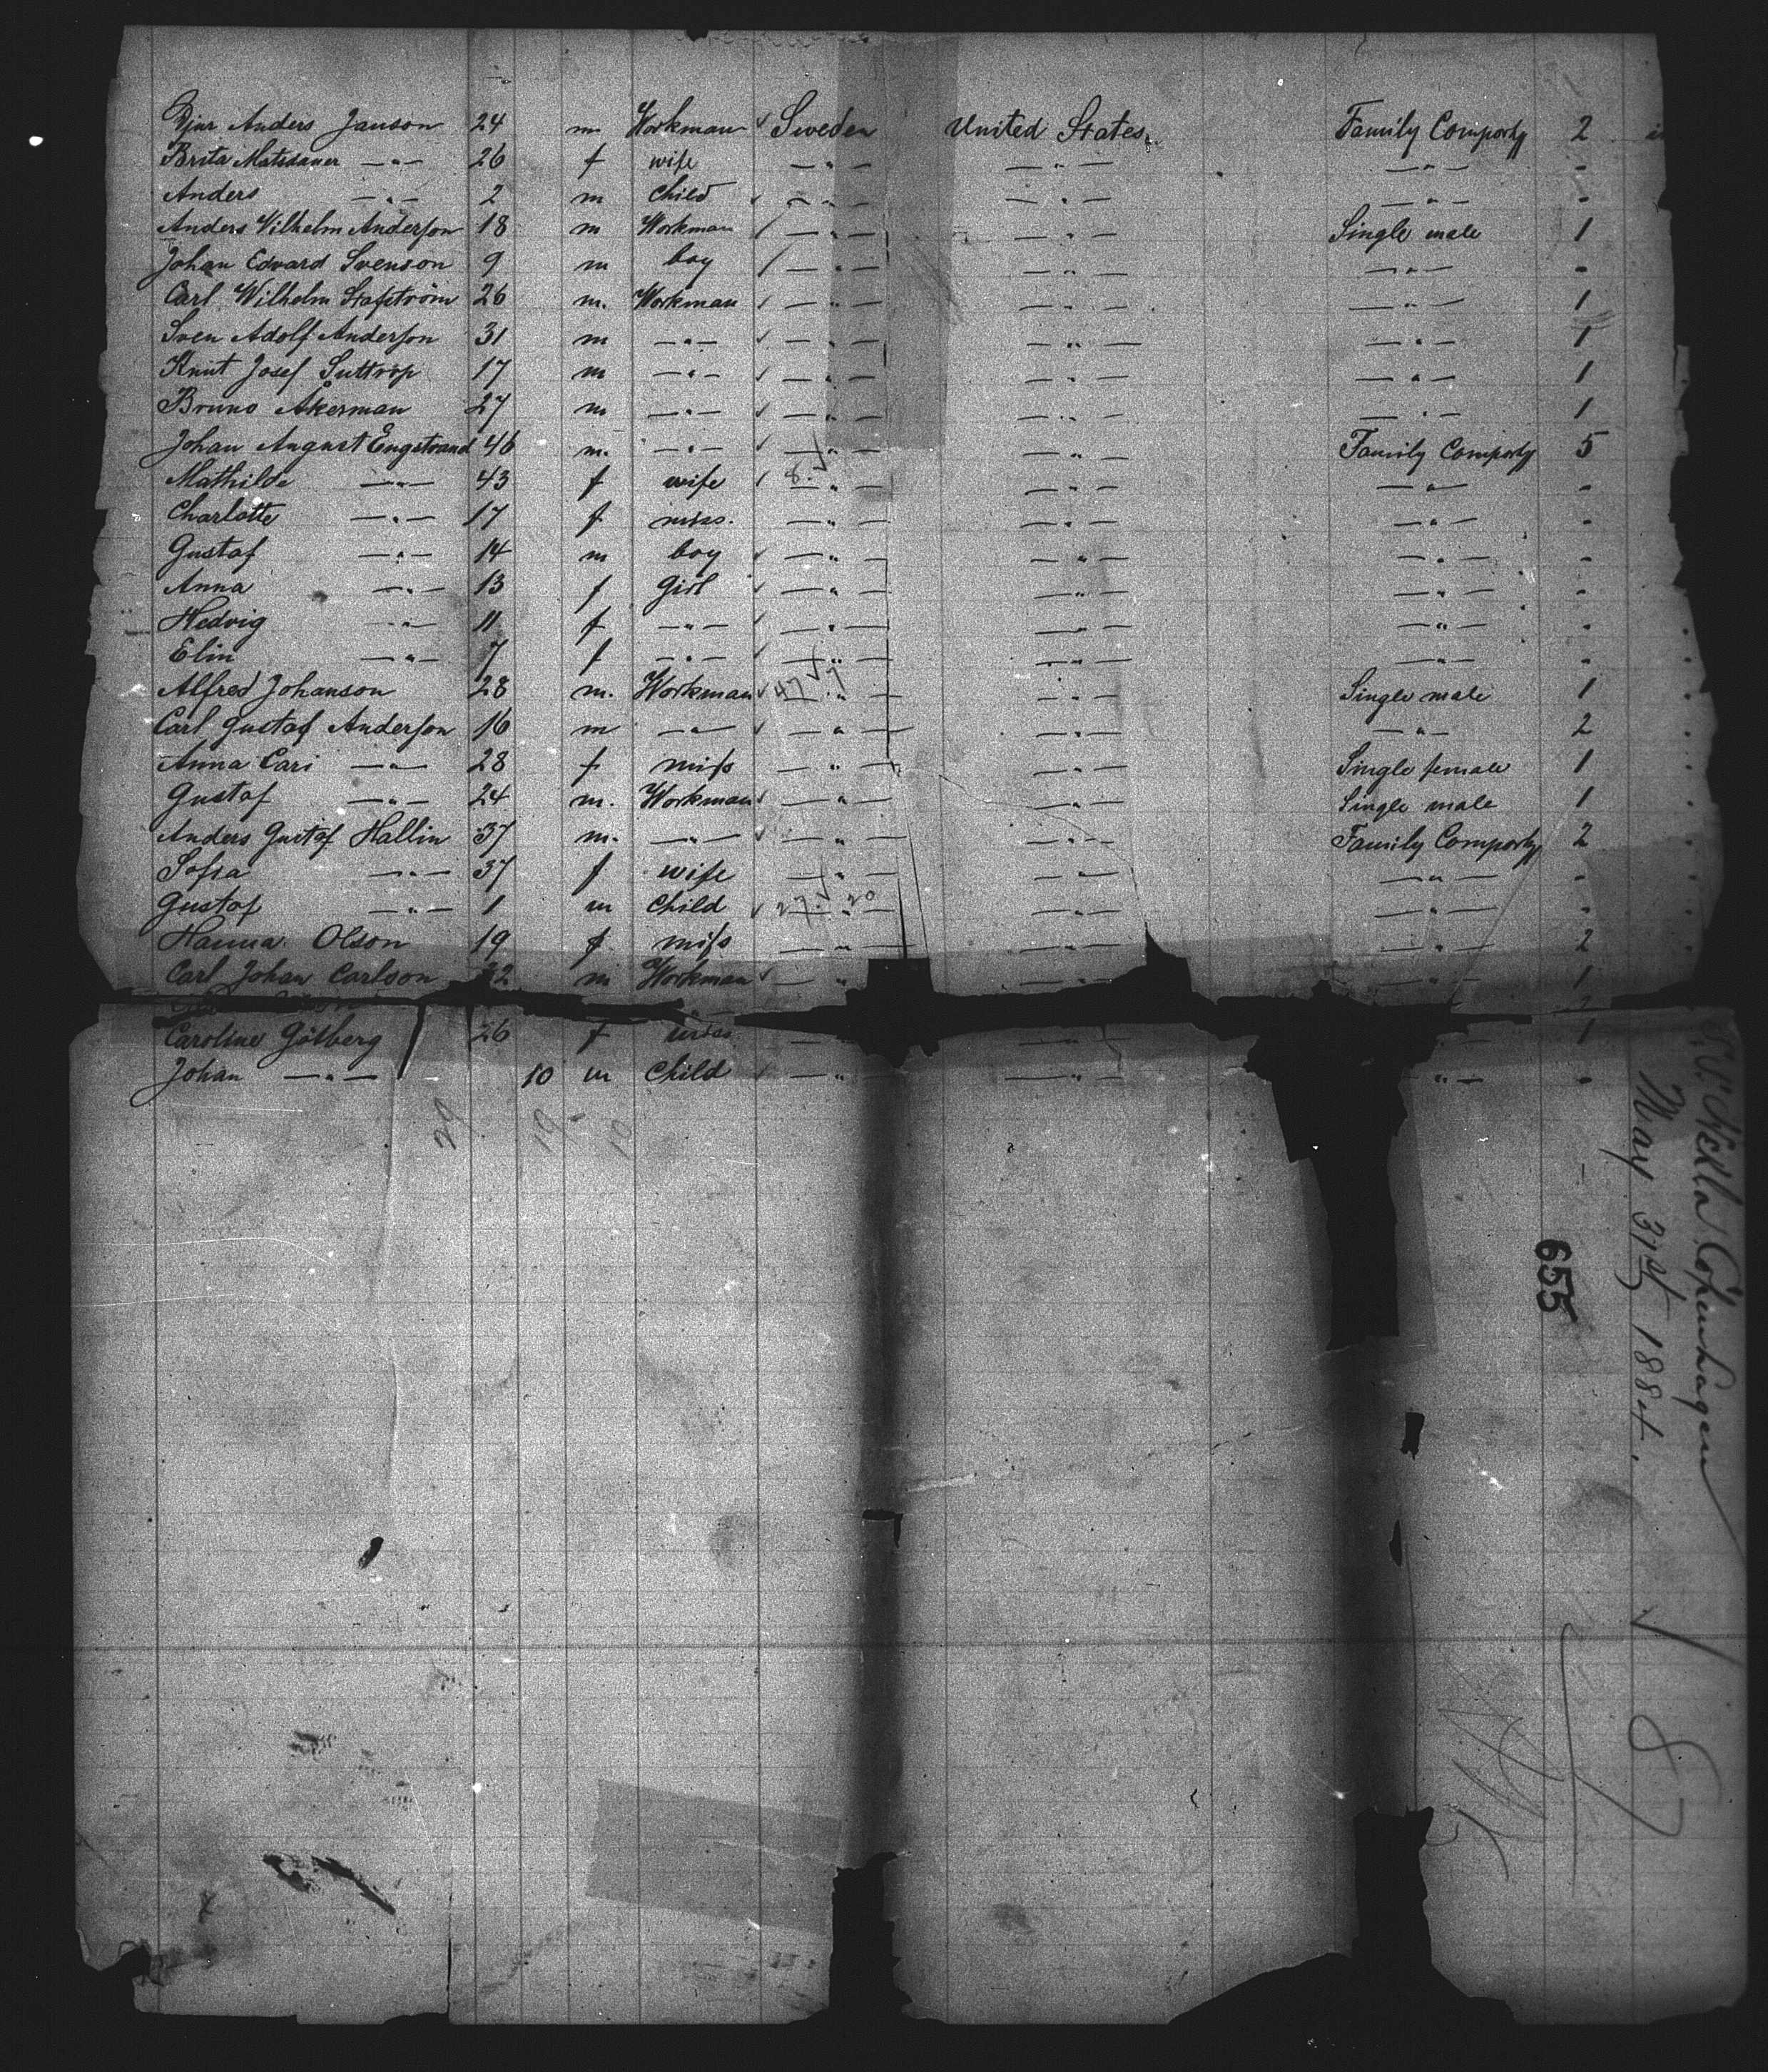 Bjur Anders Janson 24 m Workman ✓ Sweden United States. Family Comporty 2
Brita Matsdauer —"— 26 f wife —"— —"— —"— -
Anders —"— 2 m Child ✓ —"— —"— —"— -
Anders Vilhelm Anderson 18 m Workman ✓ —"— —"— Single male 1
Johan Edvard Svenson 9 m boy ✓ —"— —"— —"— -
Carl Wilhelm Stafström 26 m. Workman ✓ —"— —"— —"— 1
Sven Adolf Anderson 31 m —"— ✓ —"— —"— —"— 1
Knut Josef Suttrop 17 m —"— ✓ —"— —"— —"— 1
Bruno Åkerman 27 m —"— ✓ —"— —"— —"— 1
Johan August Engstrand 46 m. —"— ✓ —"— —"— Family Comporty 5
Mathilde —"— 43 f wife ✓ 8. —"— —"— —"— -
Charlotte —"— 17 f miss. —"— —"— —"— -
Gustaf —"— 14 m boy ✓ —"— —"— —"— -
Anna —"— 13 f Girl ✓ —"— —"— —"— -
Hedvig —"— 11 f —"— ✓ —"— —"— —"— -
Elin —"— 7 f —"— ✓ —"— —"— —"— -
Alfred Johanson 28 m. Workman ✓ 47 7 —"— —"— Single male 1
Carl Gustaf Anderson 16 m —"— ✓ —"— —"— —"— 2
Anna Cari —"— 28 f miss —"— —"— Single female 1
Gustaf —"— 24 m. Workman ✓ —"— —"— Single male 1
Anders Gustaf Hallin 37 m. —"— ✓ —"— —"— Family Comporty 2
Sofia —"— 37 f wife —"— —"— —"— -
Gustaf —"— 1 m Child ✓ 27. 20 —"— —"— —"— -
Hanna Olson 19 f miss —"— —"— —"— 2
Carl Johan Carlson 32 m Workman ✓ —"— —"— 1
Caroline Götberg 26 f miss — 1
Johan —"— 10 m Child —"— —"— —"— -
29 19 10
Hekla Copenhagen
May 31st 1884.
655
87